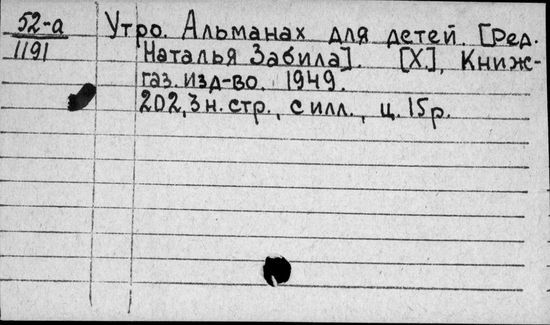 52-а
1191
Утро. Альманах для детей. [Ред.
Наталья Забила]. [Х], Книж-
газ. изд-во. 1949.
202,3 н. стр., с илл., ц. 15р.